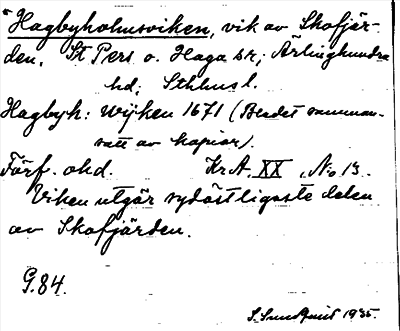 "Hagbyholmsviken, vik av Skofjär-
den. St Pers o. Haga sr; Ärlinghundra
hd; Sthlms l.
Hagbyh: wijken 1671 (Bladet samman-
satt av kopior).
Förf. okd. Kr A. XX, No 13.
Viken utgör sydöstligaste delen
av Skofjärden.
G.84.
S. Sundquist 1935.